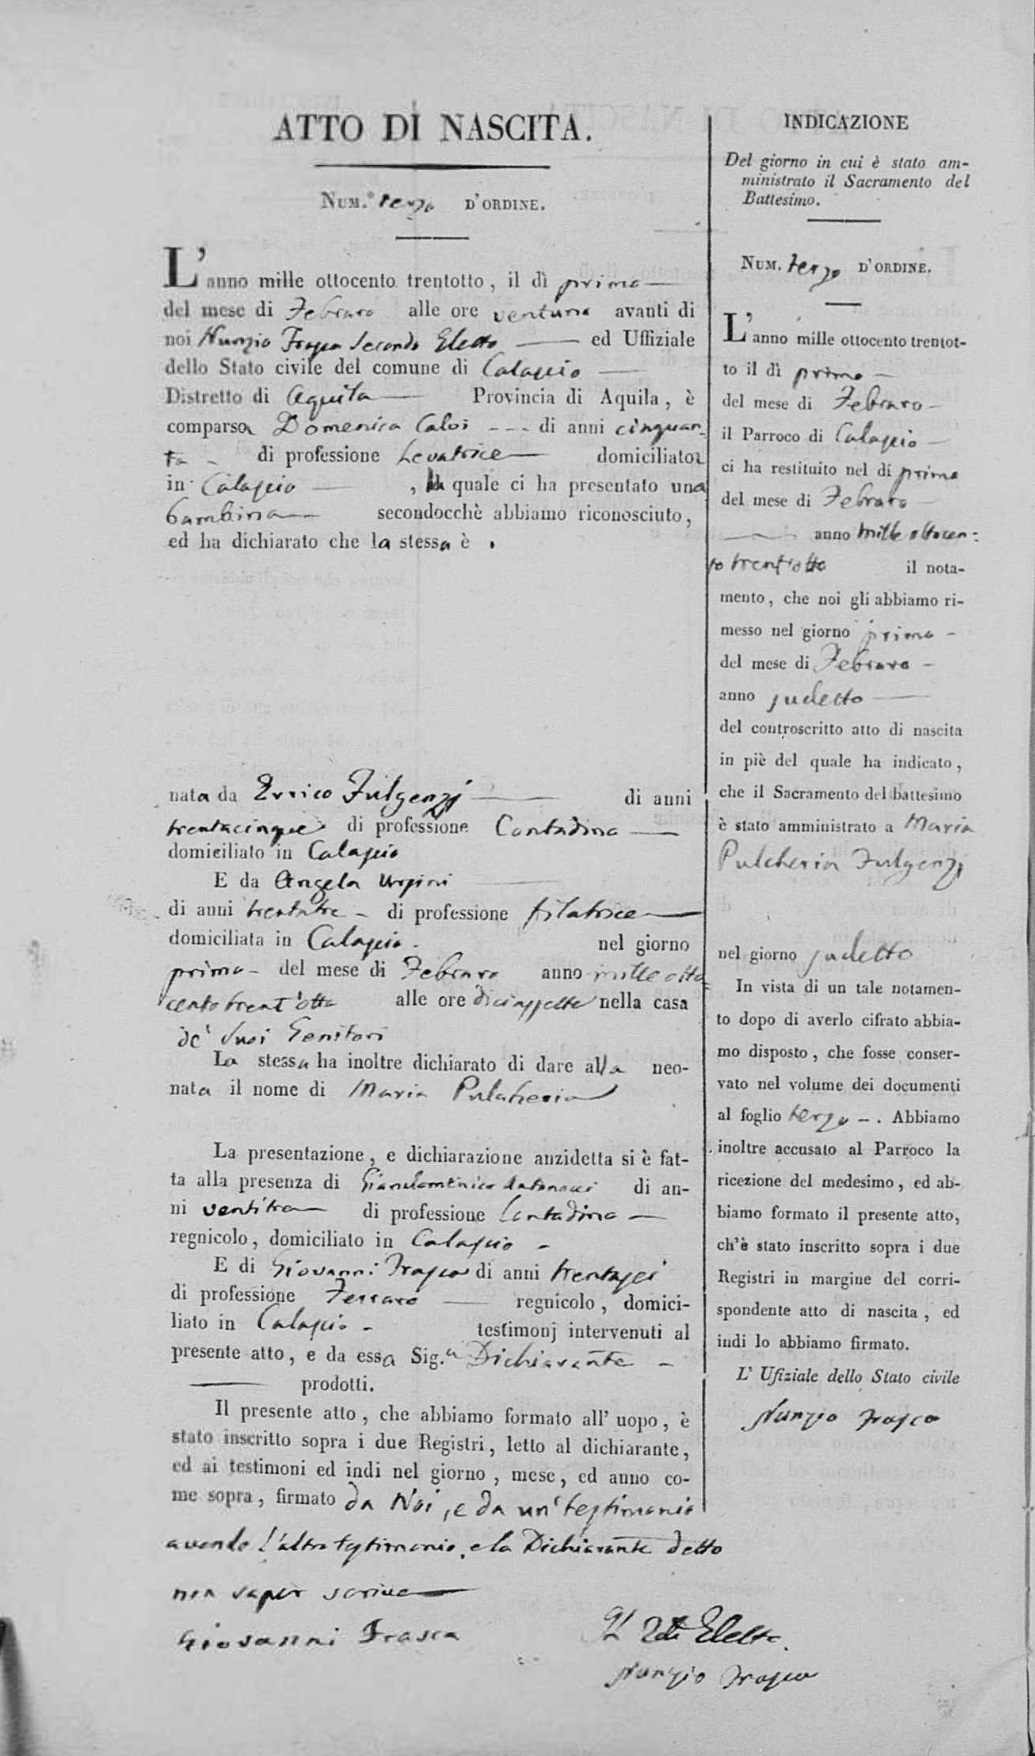 ATTO DI NASCITA.
NUM.° terzo D'ORDINE.
L'anno mille ottocento trentotto, il dì primo
del mese di Febraro alle ore ventuno avanti di
noi Nunzio Frasca Secondo Eletto ed Uffiziale
dello Stato civile del comune di Calascio
Distretto di Aquila Provincia di Aquila, è
comparsa Domenica Caloi di anni cinquan-
ta di professione Levatrice domiciliata
in Calascio, la quale ci ha presentato una
bambina secondocchè abbiamo riconosciuto,
ed ha dichiarato che la stessa è
nata da Errico Fulgenzj di anni
trentacinque di professione Contadino
domiciliato in Calascio
E da Angela
di anni trentatre di professione filatrice
domiciliata in Calascio. nel giorno
primo del mese di Febraro anno mille otto
cento trent'otto alle ore diciassette nella casa
de' suoi Genitori
La stessa ha inoltre dichiarato di dare alla neo-
nata il nome di Maria Pulcheria
La presentazione, e dichiarazione anzidetta si è fat-
ta alla presenza di Giandomenico Antonacci di an-
ni ventitre di professione Contadino
regnicolo, domiciliato in Calascio
E di Giovanni Frasca di anni trentasei
di professione Ferraro regnicolo, domici-
liato in Calascio testimonj intervenuti al
presente atto, e da essa Sig.a Dichiarante
prodotti.
Il presente atto, che abbiamo formato all' uopo, è
stato inscritto sopra i due Registri, letto al dichiarante,
ed ai testimoni ed indi nel giorno, mese, ed anno co-
me sopra, firmato da Noi, e da un testimonio
avendo l'altro testimonio, e la Dichiarante detto
non saper scrivere
Giovanni Frasca
Il 2do Eletto.
Nunzio Frasca
INDICAZIONE
Del giorno in cui è stato am-
ministrato il Sacramento del
Battesimo.
NUM. terzo D'ORDINE.
L'anno mille ottocento trentot-
to il dì primo
del mese di Febraro
il Parroco di Calascio
ci ha restituito nel dì primo
del mese di Febraro
anno mille ottocen:
to trent'otto il nota-
mento, che noi gli abbiamo ri-
messo nel giorno primo
del mese di Febraro
anno sudetto
del controscritto atto di nascita
in piè del quale ha indicato,
che il Sacramento del battesimo
è stato amministrato a Maria
Pulcheria Fulgenzj
nel giorno sudetto
In vista di un tale notamen-
to dopo di averlo cifrato abbia-
mo disposto, che fosse conser-
vato nel volume dei documenti
al foglio terzo. Abbiamo
inoltre accusato al Parroco la
ricezione del medesimo, ed ab-
biamo formato il presente atto,
ch'è stato inscritto sopra i due
Registri in margine del corri-
spondente atto di nascita, ed
indi lo abbiamo firmato.
L' Ufiziale dello Stato civile
Nunzio Frasca